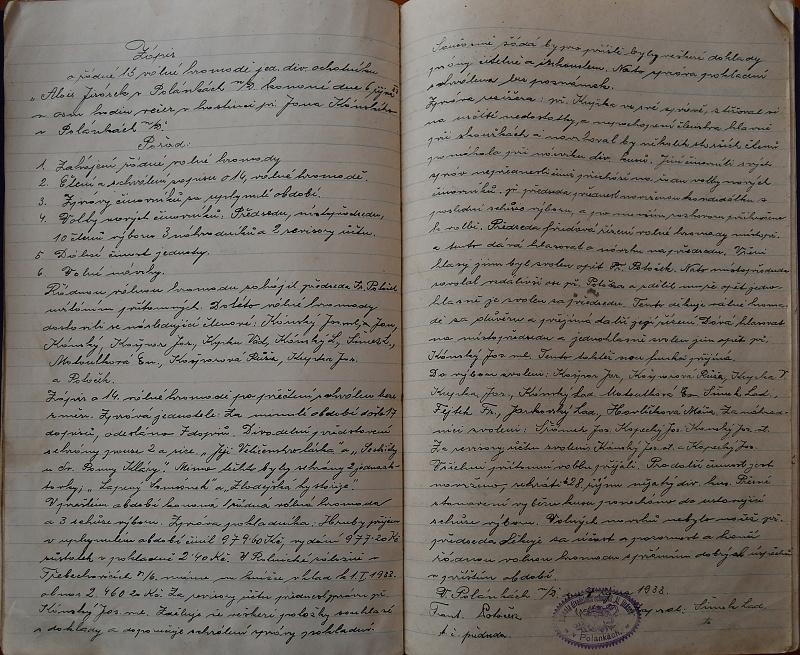 Zápis
o řádné 15 valné hromadě jed. div. ochotníků
"Alois Jirásek v Polánkách n/D. konané dne 6. října
v osm hodin večer v hostinci při. Jana Kánského
v Polánkách n/D.
Pořad:
1. Zahájení řádné valné hromady
2. Čtení a schválení zápisu o 14. valné hromadě.
3. Zprávy činovníků za uplynulé období.
4. Volby nových činovníků: Předsedu, místopředsedu,
10 členů výboru 3 náhradníků a 2 revisory účtu.
5 Další činost jednoty.
6. Volné návrhy.
Řádnou valnou hromadu zahájil předseda Fr. Potoček
uvítáním přítomných. Do této valné hromady
dostavili se následující členové: Kánský Jos. ml., Jan,
Kánský, Kašpar Jos., Kupka Vád, Kánský L., Šimek L.,
Matoulková Em., Kašparová Růža, Kupka Jos.
a Potoček.
Zápis o 14. valné hromadě po přečtení schválen beze
změn. Zpráva jednatele: Za minulé období došlo 17
dopisů, odesláno 7 dopisů. Divadelní představení
sehrány pouze 2 a sice, "Její Veličenstvo láska" a "Sedláci
u sv. Panny Kláry." Mimo těchto byly sehrány 2 jednoak-
tovky; "Lapený Samsónek" a "Zlodějská historie".
V prvém období konaná 1 řádná valná hromada
a 3 schůze výboru. Zpráva pokladníka: Hrubý příjem
v uplynulém období činil 979.60 Kč, vydání 977.20 Kč
zůstatek v pokladně 2.40 Kč. V Rolnické záložně v
Třebechovicích n/O. máme na knížce vklad k 1. I. 1933.
obnos 2.460.20 Kč. Za revisory účtu přednesl zprávu při.
Kánský Jos. ml. Zjišťuje se veškeré položky souhlasí
s doklady a doporučuje schválení zprávy pokladní.
Současně žádá by pro příště byly veškeré doklady
psány čitelně a inkoustem. Nato zpráva pokladní
schválena bez poznámek.
Zpráva režiséra: při. Kupka ve své zprávě, stěžoval si
na určité nedostatky, a nepochopení členstva hlavně
při zkouškách a navrhoval by několik starších členů
pomáhalo při nácviku div. kusů. Jiní činovníci svých
zpráv nepřednesli činž přechází na řadu volby nových
činovníků. při. předseda přednesl navrženou kandidátku z
poslední schůze výboru, a po menším rozhovoru přikročeno
k volbě. Předseda předává řízení valné hromady místopř.
a tento dává hlasovat o návrhu na předsedu. Všemi
hlasy jiným byl zvolen opět Fr. Potoček. Nato místopředseda
zavolal vzdálivší se při. Potočka a sdělil mu, že opět jedno-
hlasně je zvolen za předsedu. Tento děkuje valné hroma-
dě za důvěru a přijímá další její řízení. Dává hlasovat
na místopředsedu a jednohlasně zvolen jím opět při.
Kánský Jos. ml. Tento taktéž svou funkci přijímá.
Do výboru zvoleni: Kašpar Jos., Kašparová Růža, Kupka V.
Kupka, Jos., Kánský Lad. Matoulková Em. Šimek Lad.,
Fejtek Fr., Jarkovský Lad., Havlíčková Máňa. Za náhrad-
níci zvoleni: Šrámek Jos. Kopecký Jos. Kánský Jos. st.
Za revisory účtu zvoleni: Kánský Jos. st. a Kopecký Jos.
Všichni přítomní volbu přijali. Pro další činnost jest
navrženo, sehrát 28. října nějaký div. kus. Přesné
stanovení výběru kusu ponecháno do ustavující
schůze výboru. Volných návrhů nebylo načež při.
předseda děkuje za účast a pozornost a končí
řádnou valnou hromadu s přáním dobrých úspěchů
v příštím období.
V Polánkách n/D. 1933.
Frant. Potoček zapsal. Šimek Lad
t. č. předseda.
v Polánkách.